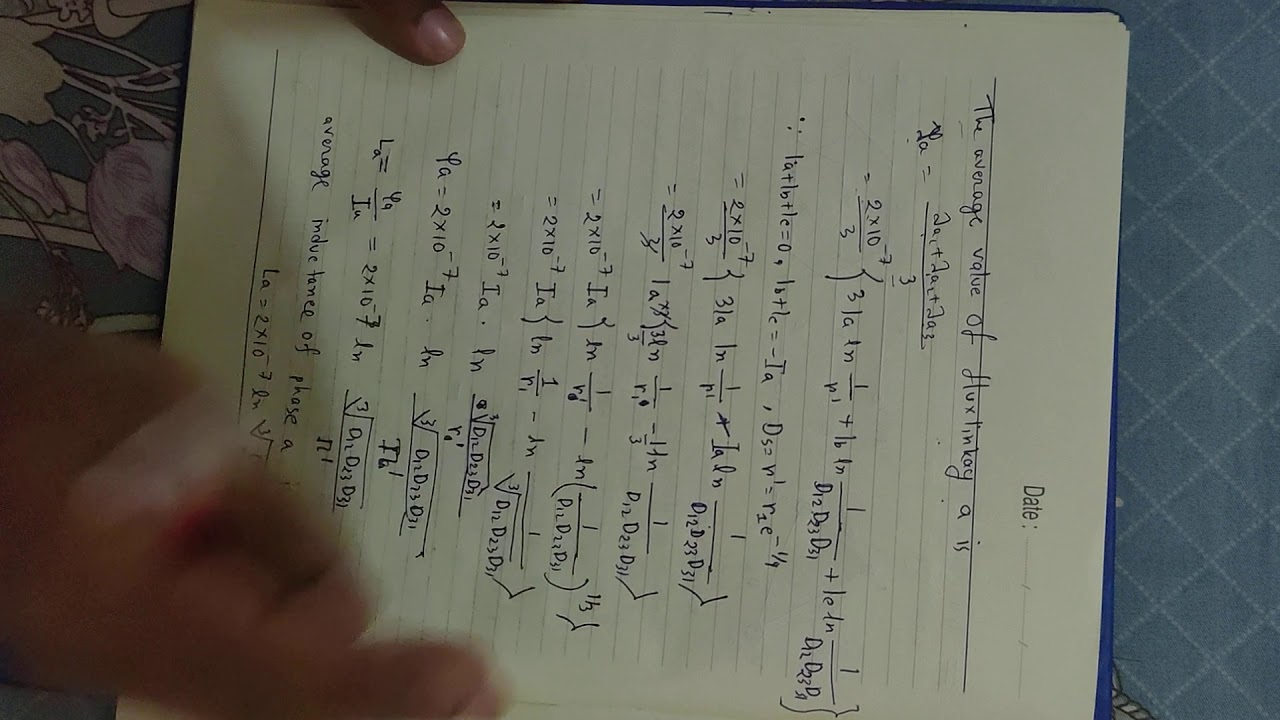 Date: / /
The average value of fluxlinkag a is
ψa = (λa1+λa2+λa3)/3
= 2×10⁻⁷/3 { 3Ia ln 1/r1' + Ib ln 1/(D12D23D31) + Ic ln 1/(D12D23D31) }
∵ Ia+Ib+Ic=0, Ib+Ic=-Ia, Ds=r'=r1e^-1/4
= 2×10⁻⁷/3 { 3Ia ln 1/r1' - Ia ln 1/(D12D23D31) }
= 2×10⁻⁷/3 Ia×3{3/3 ln 1/r1' - 1/3 ln 1/(D12D23D31) }
= 2×10⁻⁷ Ia { ln 1/r1' - ln (1/(D12D23D31))^1/3 }
= 2×10⁻⁷ Ia { ln 1/r1' - ln 1/∛(D12D23D31) }
= 2×10⁻⁷ Ia . ln ∛(D12D23D31)/r1'
ψa = 2×10⁻⁷ Ia . ln ∛(D12D23D31)/r1'
La = ψa/Ia = 2×10⁻⁷ ln ∛(D12D23D31)/r1'
average inductance of phase a
La = 2×10⁻⁷ ln ∛